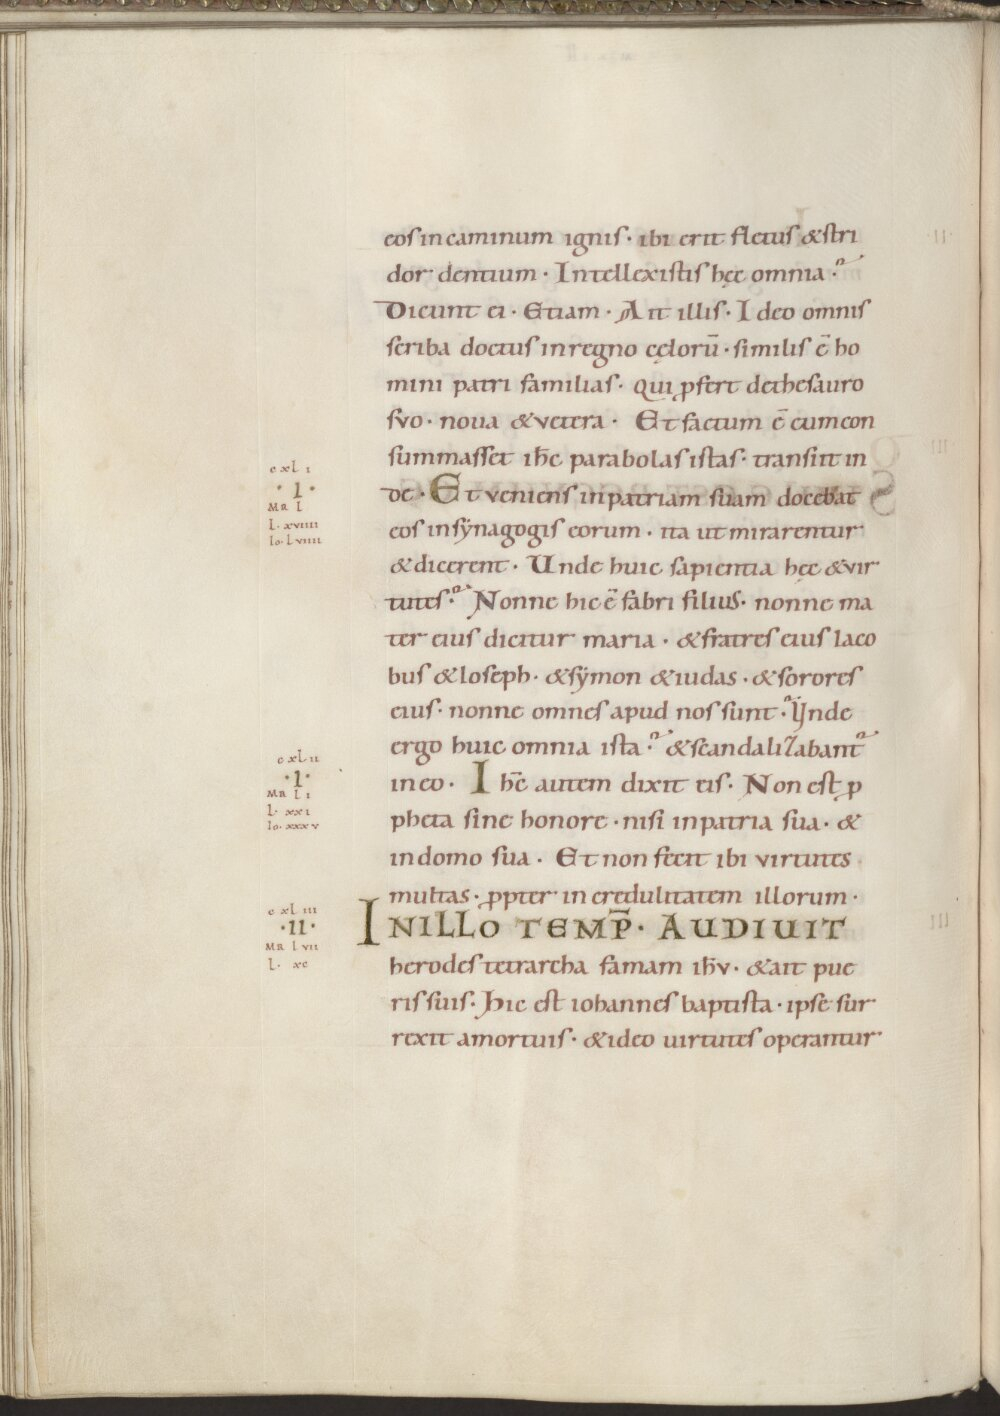 eos in caminum ignis · ibi erit fletus & stri
dor dentium · Intellexistis hęc omnia ·
Dicunt ei · Etiam · Ait illis · Ideo omnis
scriba doctus in regno cęlorū · similis ē ho
mini patri familias · qui ꝓfert de thesauro
suo · noua & vetera · Et factum ē cum con
summasset ihc̄ parabolas istas · transiit in
c xL I
· I ·
MR L
L · xvIIII
Io · LvIIII
de · Et veniens in patriam suam docebat
eos in sẏnagogis eorum · ita ut mirarentur
& dicerent · Unde huic sapientia hęc & vir
tutes · Nonne hic ē fabri filius · nonne ma
ter eius dicitur maria · & fratres eius Iaco
bus & Ioseph · & sẏmon & iudas · & sorores
eius · nonne omnes apud nos sunt · Vnde
ergo huic omnia ista · & scandalizabant̄
c xL II
· I ·
MR L I
L · xx I
Io · xxx v
in eo · Ihc̄ autem dixit eis · Non est ꝓ
pheta sine honore · nisi in patria sua · &
in domo sua · Et non fecit ibi virtutes
multas · ꝓpter incredulitatem illorum ·
c xL III
· II ·
MR L vII
L · xc
IN ILLO TEMP̄ · AUDIUIT
herodes tetrarcha famam ihv̄ · & ait pue
ris suis · Hic est iohannes baptista · ipse sur
rexit a mortuis · & ideo uirtutes operantur